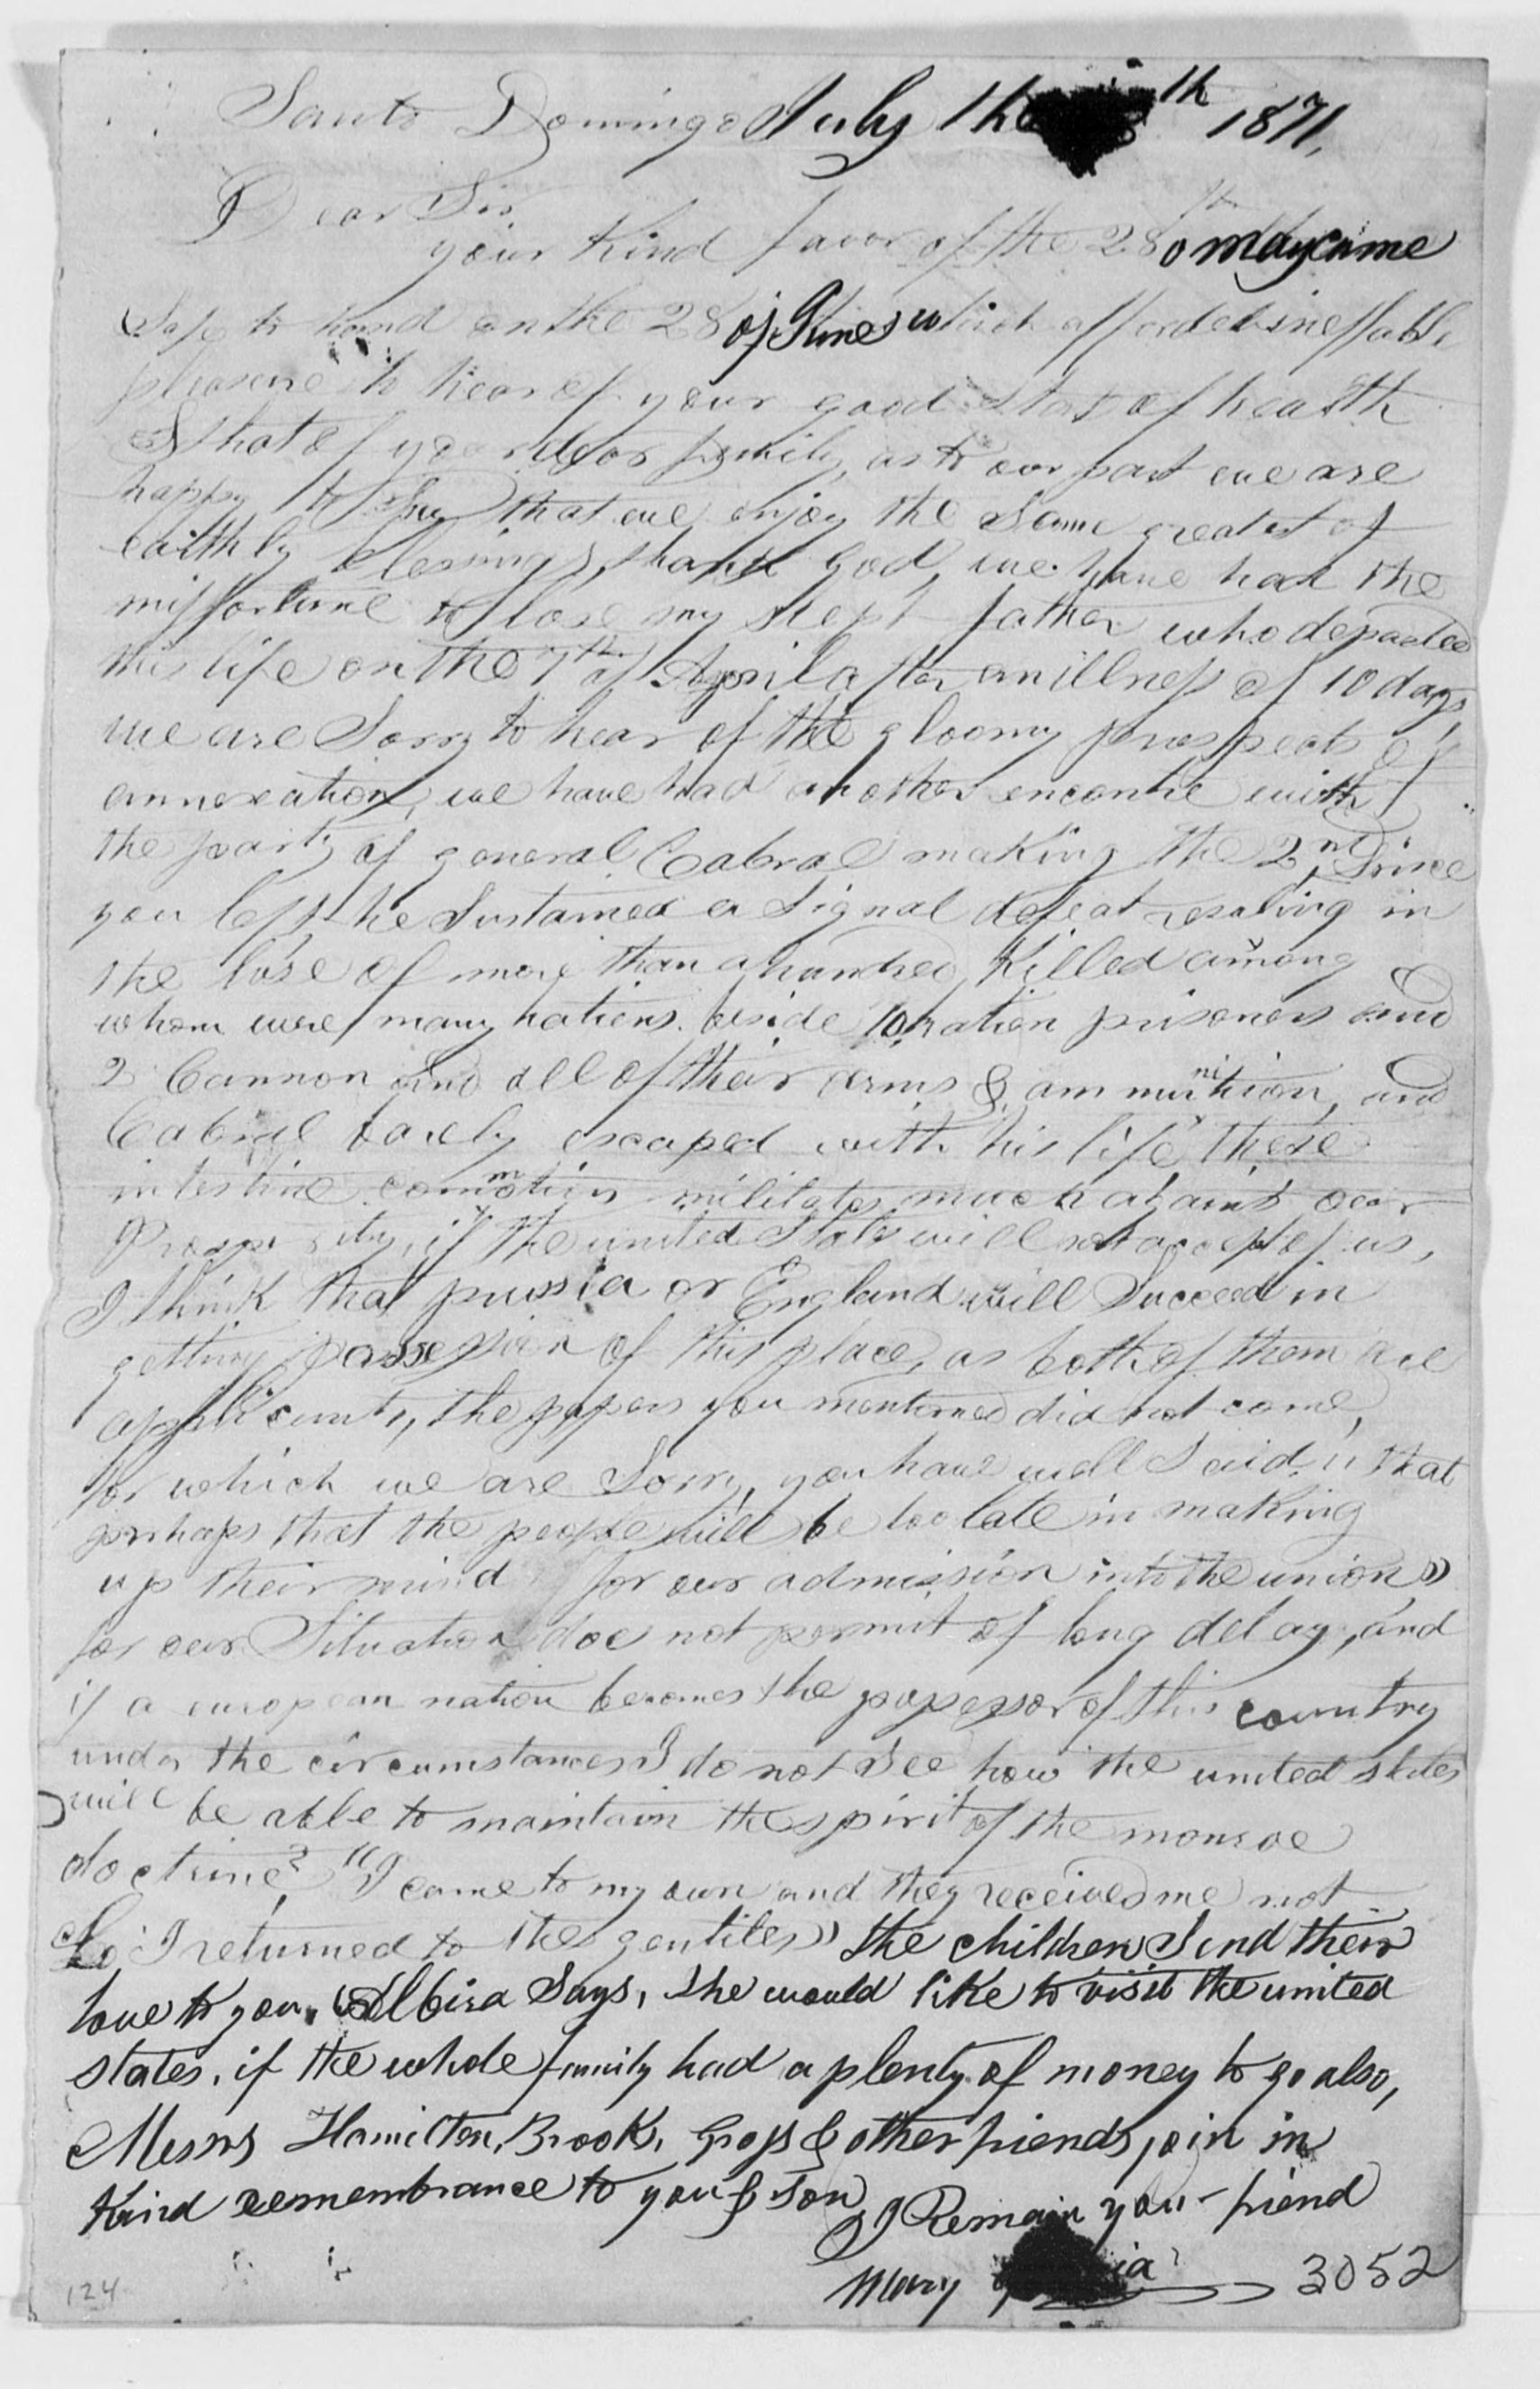 Santo Domingo July the th 1871,
Dear Sir
your Kind favor of the 28th o may came
Safe to hand on the 28 of June which afforded ineffable
pleasure to hear of your good state of health
& that of your dear family, as to our part we are
happy to say that we enjoy the same greatest of
earthly blessings, thank God, we have had the
misfortune to lose my step father who departed
this life on the 7th of April after an illness of 10 days,
we are Sorry to hear of the gloomy prospects of
annexation, we have had another encontre with
the party of general Cabral making the 2nd, Since
you left, he Sustained a Signal defeat resulting in
the lose of more than a hundred Killed among
whom were many hatiens. beside 10 hatien prisoners and
2 Cannon and all of their arms & ammunition, and
Cabral barely escaped with his life these
intestine commotions militates much against our
Prosperity, if the united States will not accept of us,
I think that prussia or England will Succeed in
getting possession of this place, as both of them are
applicants, the papers you mentioned did not come,
for which we are Sorry, you have well Said, " that
perhaps that the people will be too late in making
up their mind for our admission into the union"
for our Situation doe not permit of long delay, and
if a european nation becomes the possessor of this country
under the circumstances I do not See how the united states
will be able to maintain the spirit of the monroe
doctrine? "I came to my own and they received me not
Lo I returned to the gentiles" the children Send their
love to you, Albira Says, She would like to visit the united
states. if the whole family had a plenty of money to go also,
Messrs Hamilton, Brooks, Gross & other friends join in
Kind remembrance to you & Son
I Remain your friend
Mary ia 3052
124